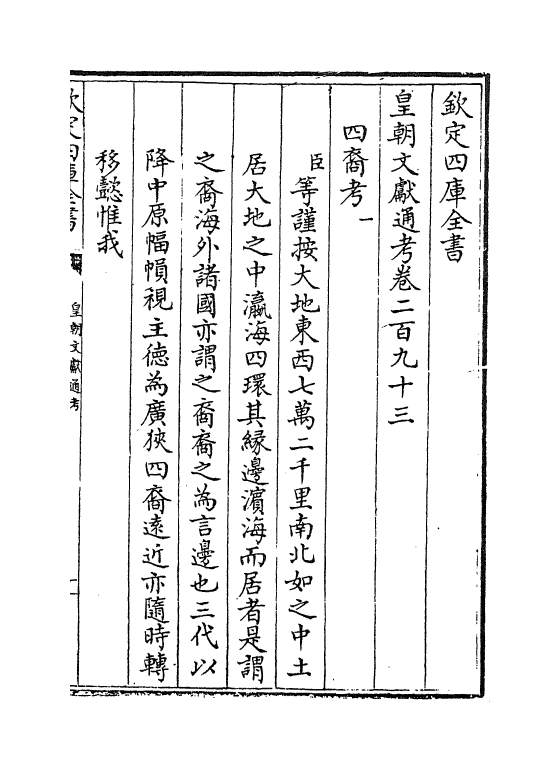 欽定四庫全書
皇朝文獻通考卷二百九十三
四裔考一
臣等謹按大地東西七萬二千里南北如之中土
居大地之中瀛海四環其緣邊濱海而居者是謂
之裔海外諸國亦謂之裔裔之為言邊也三代以
降中原幅幀視主德為廣狹四裔遠近亦隨時轉
移懿惟我
欽定四庫全書
皇朝文獻通考
一